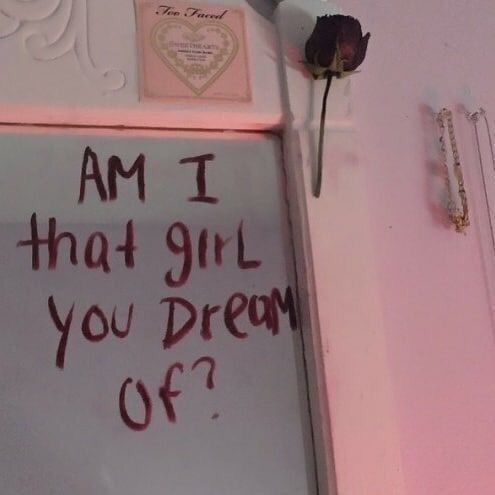 Too Faced
SWEETHEARTS
AM I
that girL
you Dream
of?